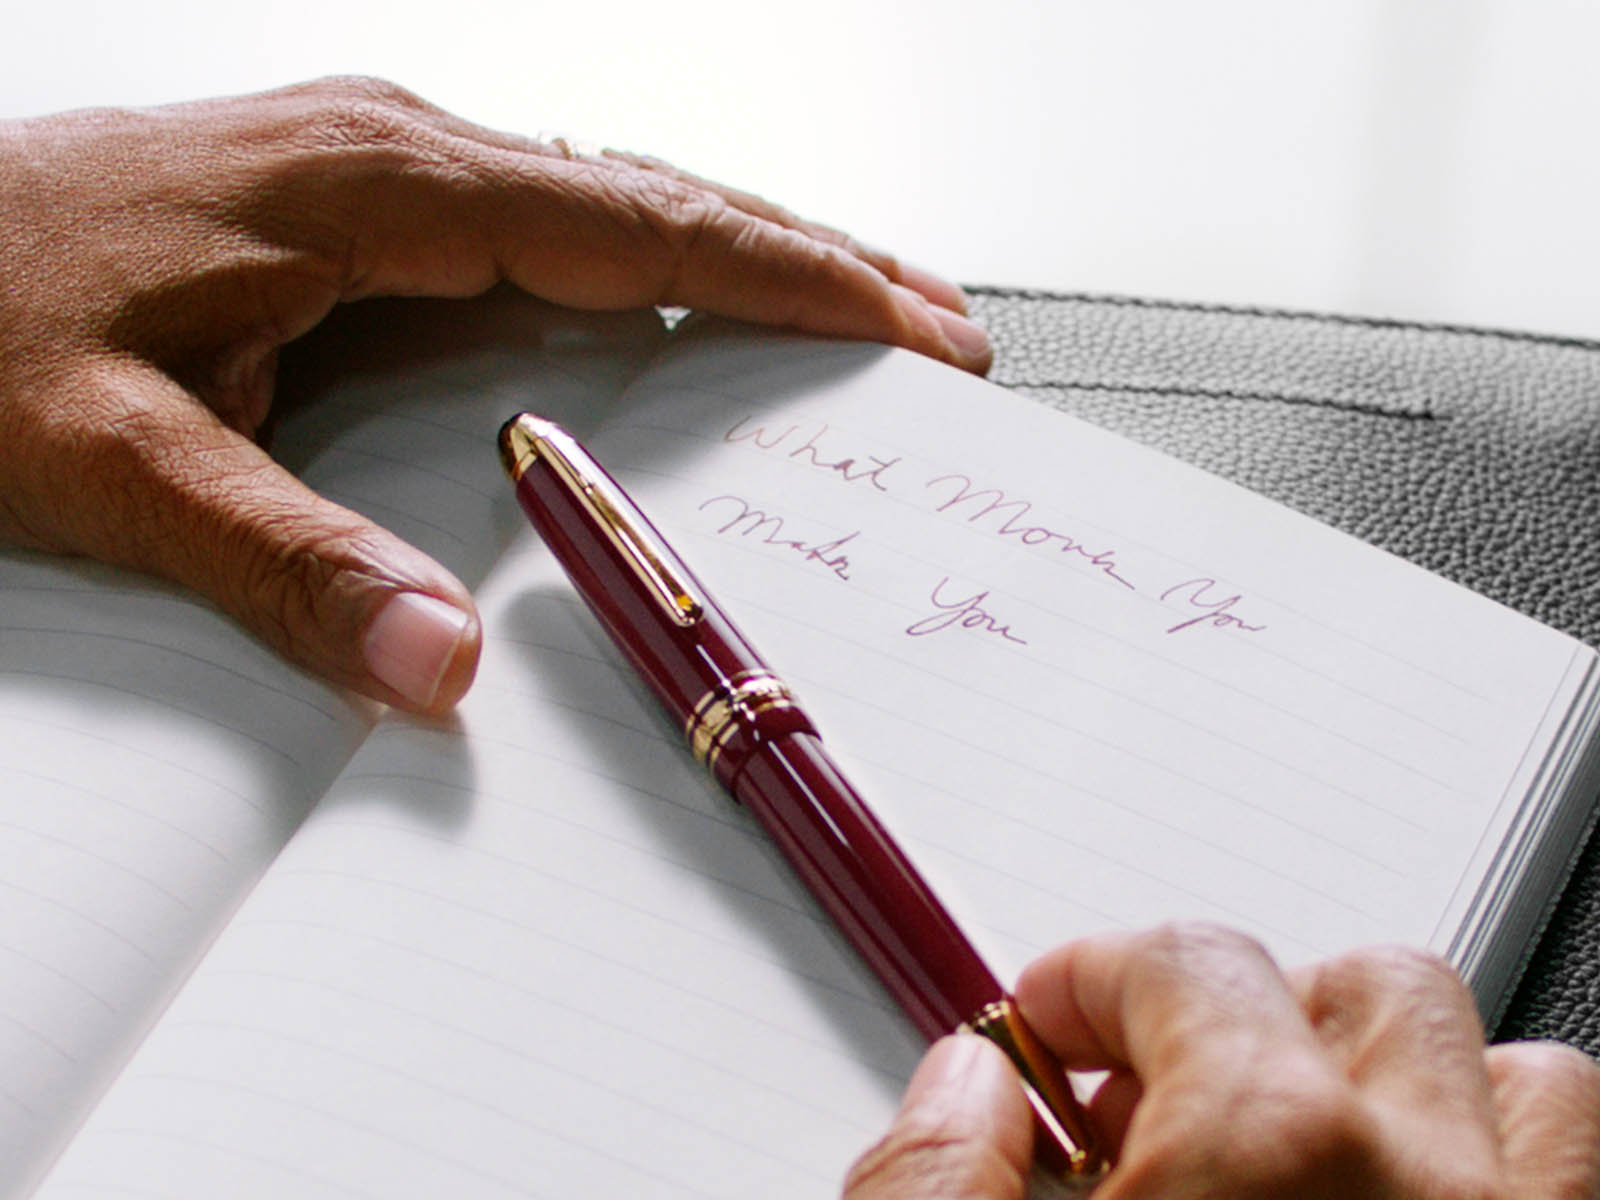 What Moves You
Makes You